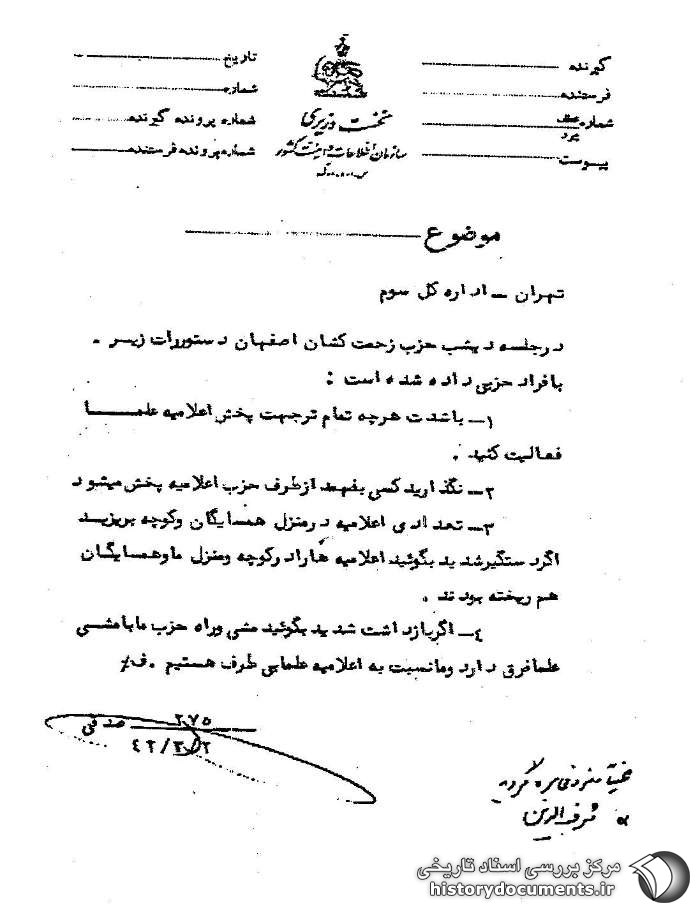 گیرنده
فرستنده
شماره
پیوست
نخست وزیری
سازمان اطلاعات و امنیت کشور
س.ا.و.ا.ک
تاریخ
شماره
شماره پرونده گیرنده
شماره پرونده فرستنده
موضوع
تهران ــ اداره کل سوم
درجلسه دیشب حزب زحمت کشان اصفهان دستورات زیر .
بافراد حزبی داده شده است :
۱ــ باشدت هرچه تمام ترجهت پخش اعلامیه علمــا
فعالیت کنید .
۲ــ نگذارید کسی بفهمد ازطرف حزب اعلامیه پخش میشود
۳ــ تعدادی اعلامیه درمنزل همسایگان وکوچه بریزید
اگردستگیرشدید بگوئید اعلامیه هارادرکوچه ومنزل ماوهمسایگان
هم ریخته بودند .
٤ــ اگربازداشت شدید بگوئید مشی وراه حزب مابامشی
علمافرق دارد ومانسبت به اعلامیه علمابی طرف هستیم .ف/
۲۷۵
صدقی
۴۲/۳/۲
مرکز بررسی اسناد تاریخی
historydocuments.ir